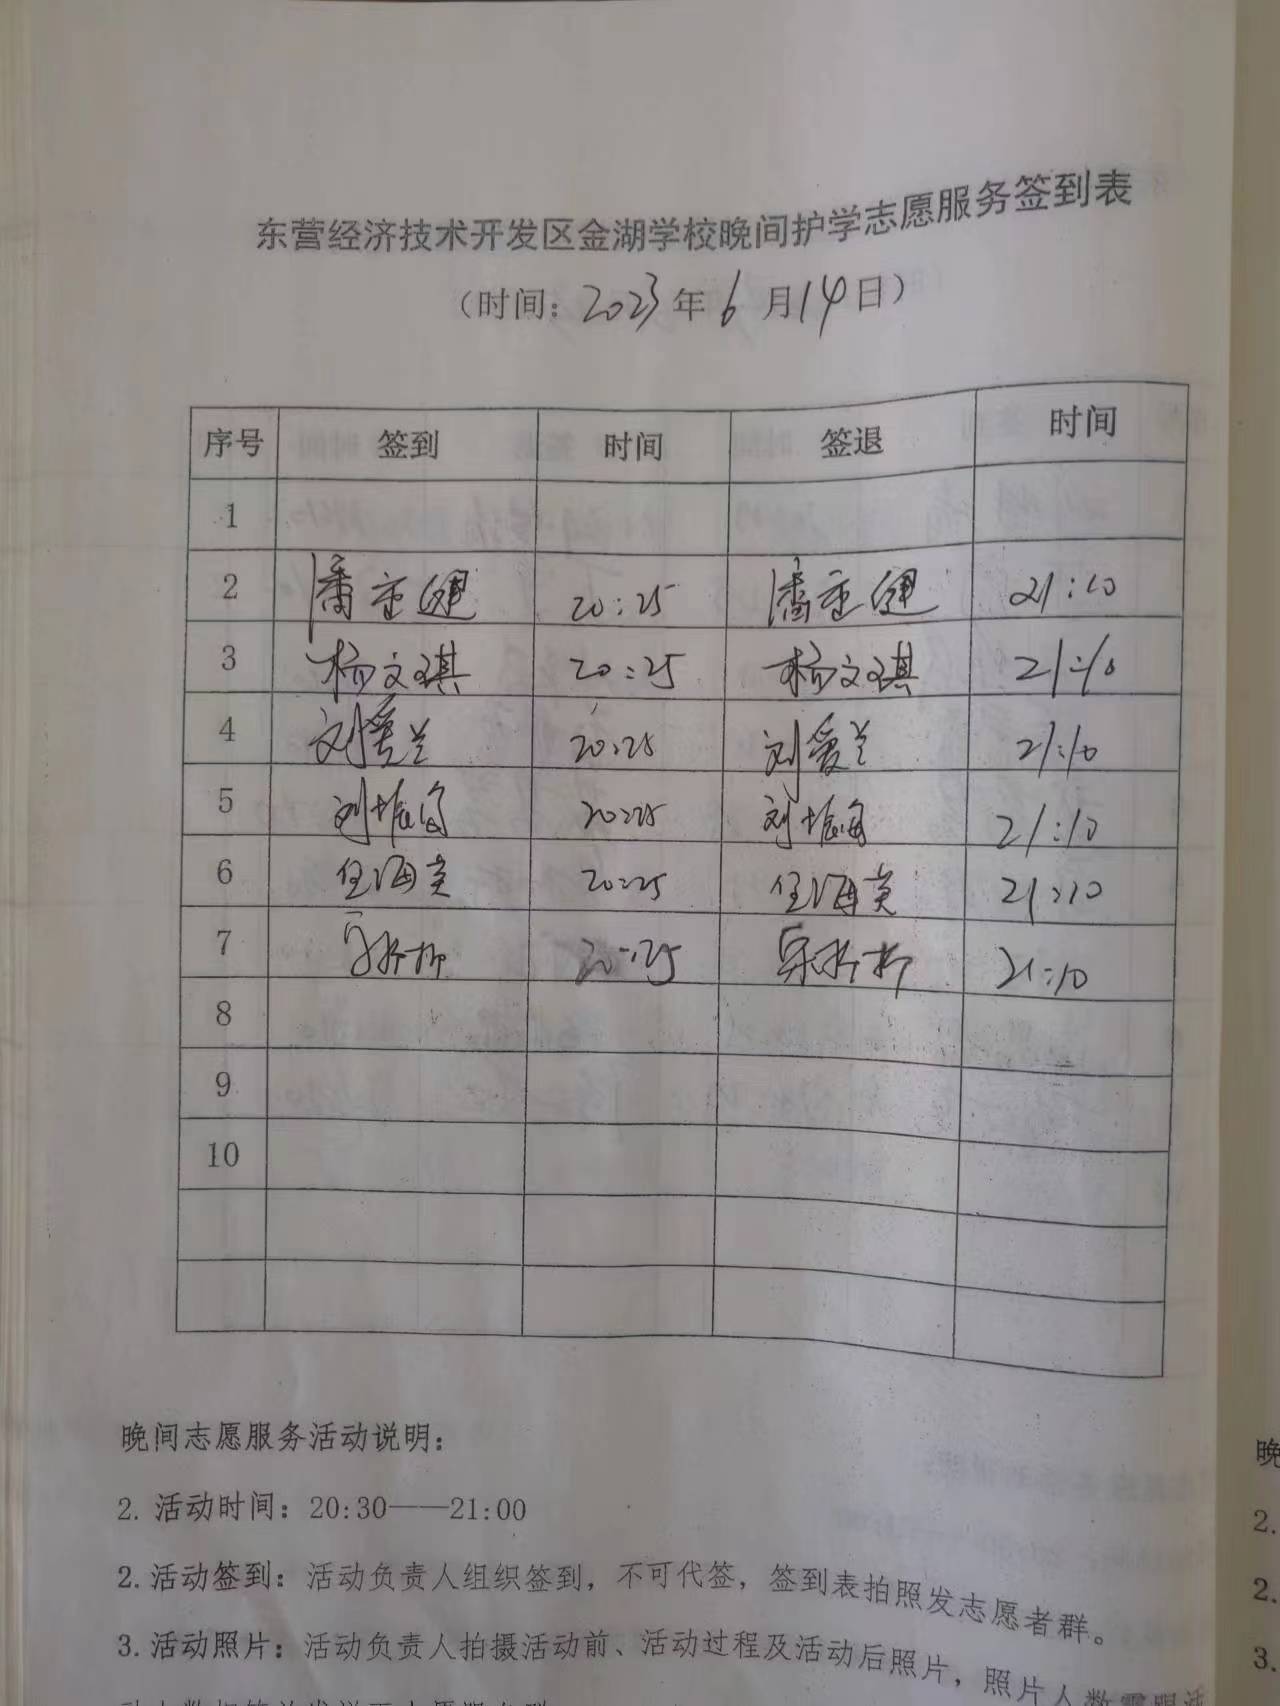 东营经济技术开发区金湖学校晚间护学志愿服务签到表
（时间：2023年6月14日）
序号 签到 时间 签退 时间
1
2 潘重健 20:25 潘重健 21:10
3 杨文琪 20:25 杨文琪 21:10
4 刘爱兰 20:25 刘爱兰 21:10
5 刘振海 20:25 刘振海 21:10
6 任海英 20:25 任海英 21:10
7 20:25 21:10
8
9
10
晚间志愿服务活动说明：
2. 活动时间：20:30——21:00
2. 活动签到：活动负责人组织签到，不可代签，签到表拍照发志愿者群。
3. 活动照片：活动负责人拍摄活动前、活动过程及活动后照片，照片人数需跟活
晚
2.
2.
3.